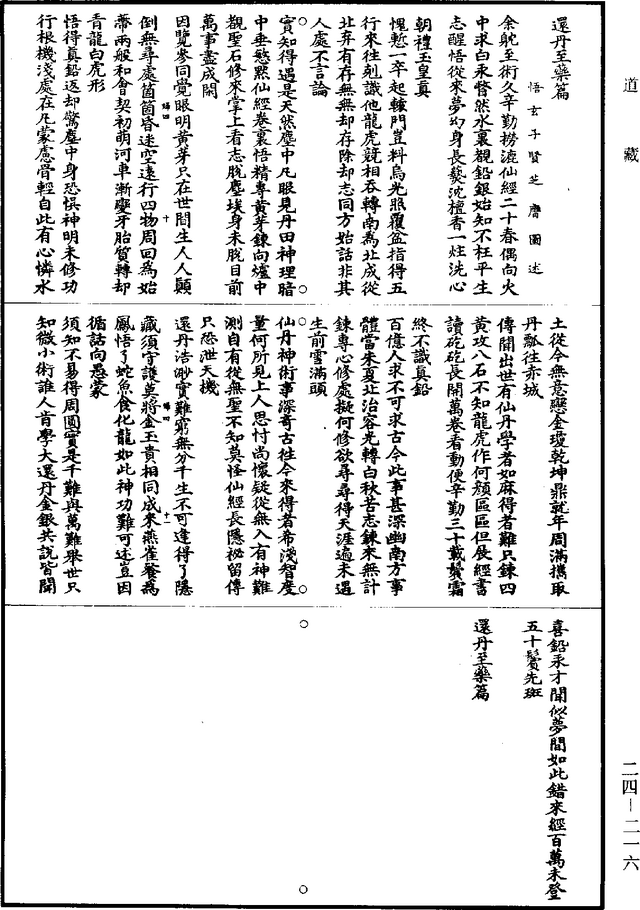 道藏
還丹至藥篇
悟玄子賢芝膺圖述
余躭至術久辛勤撈漉仙經二十春偶向火
中求白永瞥然水裏覩鉛銀始知不枉平生
志醒悟從來夢幻身長爇沈檀香一炷洗心
朝禮玉皇真
愧慙一卒起轅門豈料烏光照覆盆指得五
行來往剋識他龍虎競相吞轉南為北成從
北弃有存無無却存除却志同方始話非其
人處不言論
寅知得遇是天然塵中凡眼見丹田神理暗
中垂慜黙仙經卷裏悟精專黄芽鍊向爐中
覩聖石修來掌上看志脫塵埃身未脫目前
萬事盡成閑
因覽參同覺眼明黄芽只在世間生人人顛
倒無尋處箇箇昏迷空遠行四物周回為始
蒂兩般和會契初萌河車漸變牙胎質轉却
青龍白虎形
悟得真鉛返却驚塵中身恐惧神明未修功
行根機淺處在凡蒙慮骨輕自此有心憐水
土從今無意戀金瓊乾坤鼎就年周滿攜取
丹瓢往赤城
傳聞出世有仙丹學者如麻得者難只鍊四
黄攻八石不知龍虎作何顏區區但展經書
讀矻矻長開萬卷看動便辛勤三十載鬢霜
終不識真鉛
百億人求不可求古今此事甚深幽南方事
體當朱夏北治容光轉白秋苦志鍊來無計
鍊專心修處擬何修欲尋尋得天涯遍未遇
生前雲滿頭
仙丹神術事深奇古往今來得者希淺智度
量何所見上人思忖尚懷疑從無入有神難
測自有從無聖不知莫怪仙經長隱祕留傳
只恐泄天機
還丹浩渺實難窮無分千生不可逢得了隱
藏須守護莫將金玉貴相同成來燕雀飡為
鳳悟了蛇魚食化龍如此神功難可述豈因
循話向愚蒙
須知不易得周圓實是千難與萬難舉世只
知微小術誰人肯學大還丹金銀共說皆開
喜鉛汞才聞似夢間如此錯來經百萬未登
五十鬢先斑
還丹至藥篇
二四—二一六